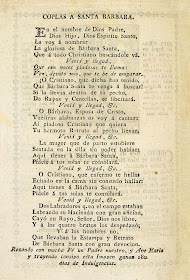 COPLAS A SANTA BARBARA.
En el nombre de Dios Padre,
Dios Hijo, Dios Espíritu Santo,
La voy á nombrar
La gloriosa de Bárbara Santa,
Que á todo Christiano buscándole vá.
Venid y llegad,
Que con voces piadosas te llama:
Ven, devoto mio, que te he de amparar.
O Christiano, que dicha has tenido,
Que Bárbara Santa te venga á buscar!
Si la llevas dentro de tu pecho,
De Rayos y Centellas, te librará.
Venid y llegad, &c.
O Bárbara, Esposa de Christo,
Vuestras alabanzas os voy á cantar
Al piadoso Christiano que quiera
Tu hermoso Retrato al pecho llevar.
Venid y llegad, &c.
La muger que de parto estubiere
Sentada en la silla sin poder hablar,
Aqui tienes á Bárbara Santa,
Pidele á tus solas te consolará.
Venid y llegad, &c.
O Christiano, que enfermo te hallas
Echado en la cama sin consuelo hallar:
Aqui tienes á Bárbara Santa,
Pidele á tus solas te consolará.
Venid y llegad, &c.
Dos Labradores que en el campo estaban
Labrando su Hacienda con gran aficion,
Cayó un Rayo, Señor, Dios nos libre,
Y á los quatro brutos los despedazó.
Y á los hombres no,
Que llevaban la Estampa y Retrato
De Bárbara Santa con gran devocion.
Rezando con mucha Fé un Padre nuestro, y Ave Maria
y trayendo consigo esta Imagen ganan 180.
dias de Indulgencias.